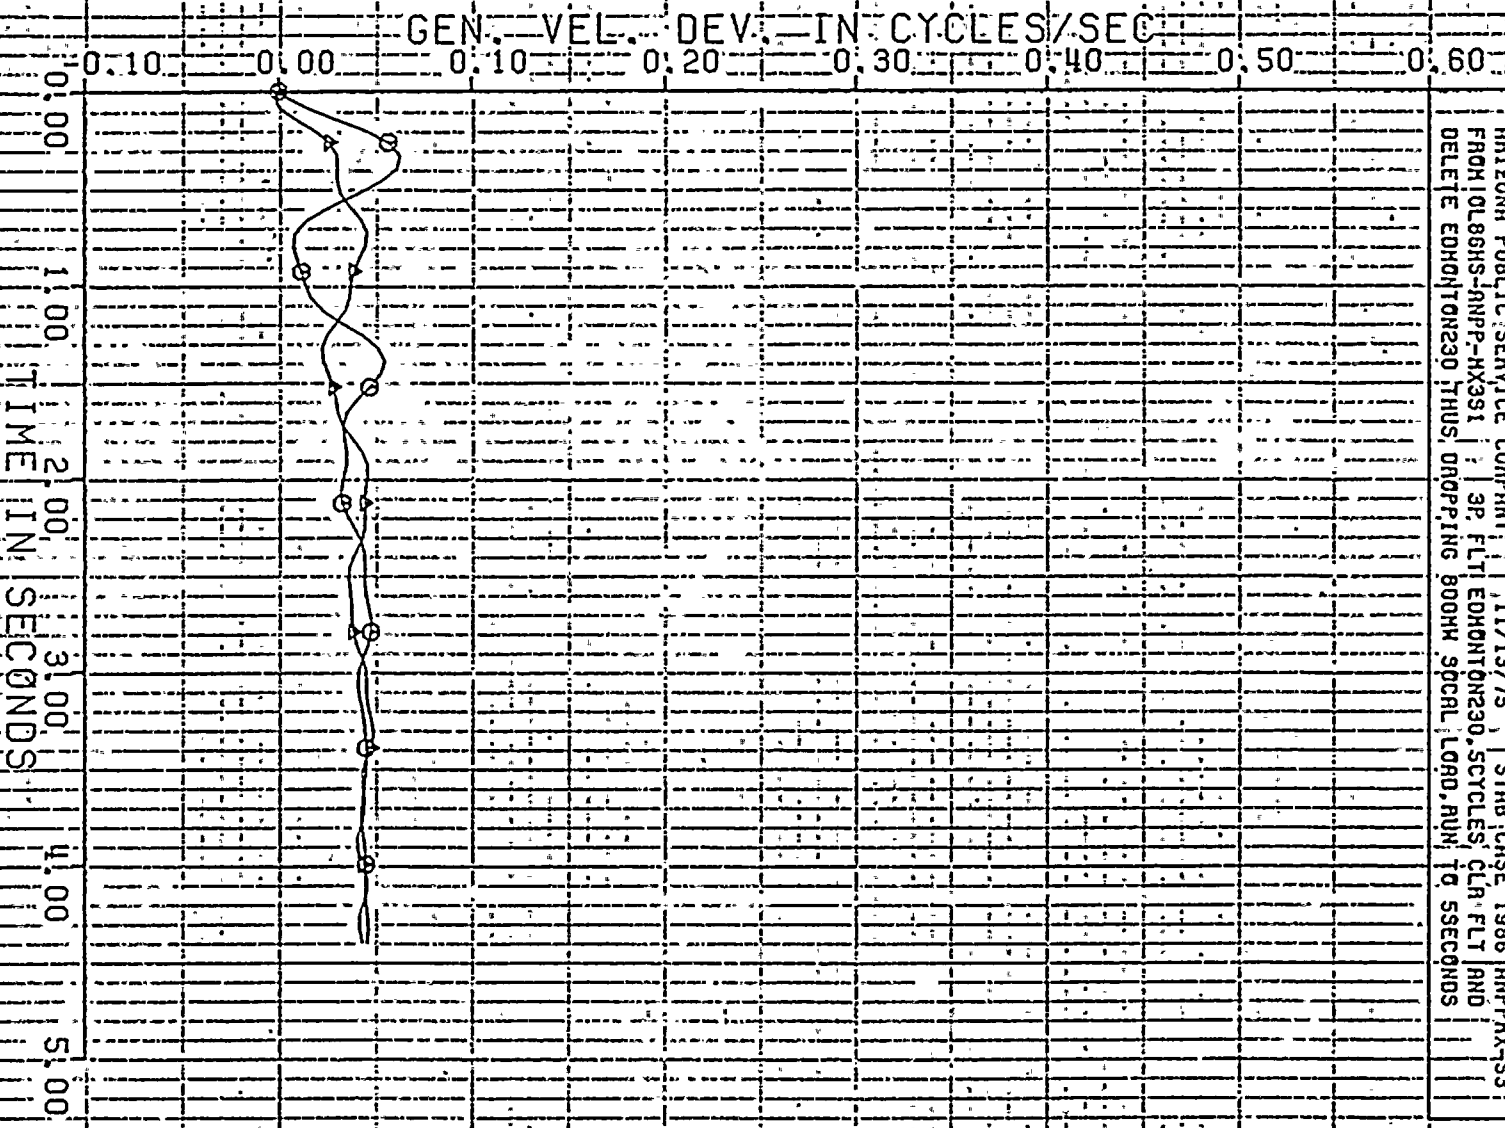 GEN. VEL. DEV. IN CYCLES/SEC
-0.10 0.00 0.10 0.20 0.30 0.40 0.50 0.60
0.00
1.00
2.00
3.00
4.00
5.00
TIME IN SECONDS
PUBLIC SERVICE COMPANY 11/13/75 STAB CASE 1986
FROM 3P FLT EDMONTON230,5CYCLES CLR FLT AND
DELETE EDMONTON230 THUS DROPPING 800MW SOCAL LOAD,RUN TO 5SECONDS